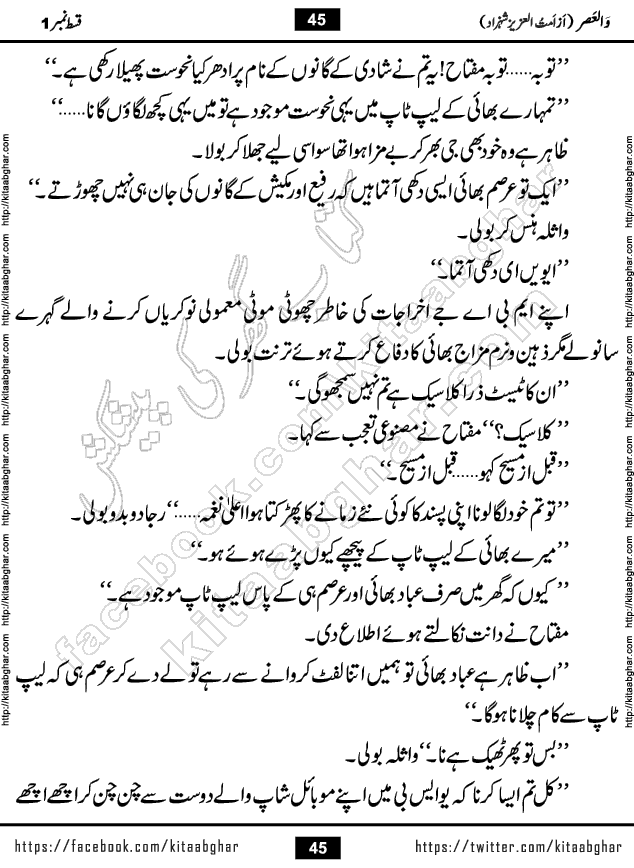 وَالعَصر (از اَمتُ العزیز شہزاد) 45 قسط نمبر 1
’’توبہ……توبہ مفتاح! یہ تم نے شادی کے گانوں کے نام پر ادھر کیا نحوست پھیلا رکھی ہے۔‘‘
’’تمہارے بھائی کے لیپ ٹاپ میں یہی نحوست موجود ہے تو میں یہی کچھ لگاؤں گا نا……‘‘
ظاہر ہے وہ خود بھی جی بھر کر بے مزا ہوا تھا سو اسی لیے جھلا کر بولا۔
’’ایک تو عرصم بھائی ایسی دکھی آتما ہیں کہ رفیع اور مکیش کے گانوں کی جان ہی نہیں چھوڑتے۔‘‘
واثلہ ہنس کر بولی۔
’’ایویں ای دکھی آتما۔‘‘
اپنے ایم بی اے جے اخراجات کی خاطر چھوٹی موٹی معمولی نوکریاں کرنے والے گہرے
سانولے مگر ذہین و نرم مزاج بھائی کا دفاع کرتے ہوئے ترنت بولی۔
’’ان کا ٹیسٹ ذرا کلاسیک ہے تم نہیں سمجھو گی۔‘‘
’’کلاسیک؟‘‘ مفتاح نے مصنوعی تعجب سے کہا۔
’’قبل از مسیح کہو……قبل از مسیح۔‘‘
’’تو تم خود لگا لو نا اپنی پسند کا کوئی نئے زمانے کا پھڑکتا ہوا اعلیٰ نغمہ……‘‘ رجا دوبدو بولی۔
’’میرے بھائی کے لیپ ٹاپ کے پیچھے کیوں پڑے ہوئے ہو۔‘‘
’’کیوں کہ گھر میں صرف عباد بھائی اور عرصم ہی کے پاس لیپ ٹاپ موجود ہے۔‘‘
مفتاح نے دانت نکالتے ہوئے اطلاع دی۔
’’اب ظاہر ہے عباد بھائی تو ہمیں اتنا لفٹ کروانے سے رہے تو لے دے کر عرصم ہی کہ لیپ
ٹاپ سے کام چلانا ہوگا۔‘‘
’’بس تو پھر ٹھیک ہے نا۔‘‘ واثلہ بولی۔
’’کل تم ایسا کرنا کہ یو ایس بی میں اپنے موبائل شاپ والے دوست سے چن چن کر اچھے اچھے
http://kitaabghar.com http://kitaabghar.com http://kitaabghar.com http://kitaabghar.com http://kitaabghar.com http://kitaabghar.com
http://kitaabghar.com http://kitaabghar.com http://kitaabghar.com http://kitaabghar.com http://kitaabghar.com http://kitaabghar.com
کتاب گھر کی پیشکش
facebook.com/kitaabghar
kitaabghar.com
https://facebook.com/kitaabghar 45 https://twitter.com/kitaabghar